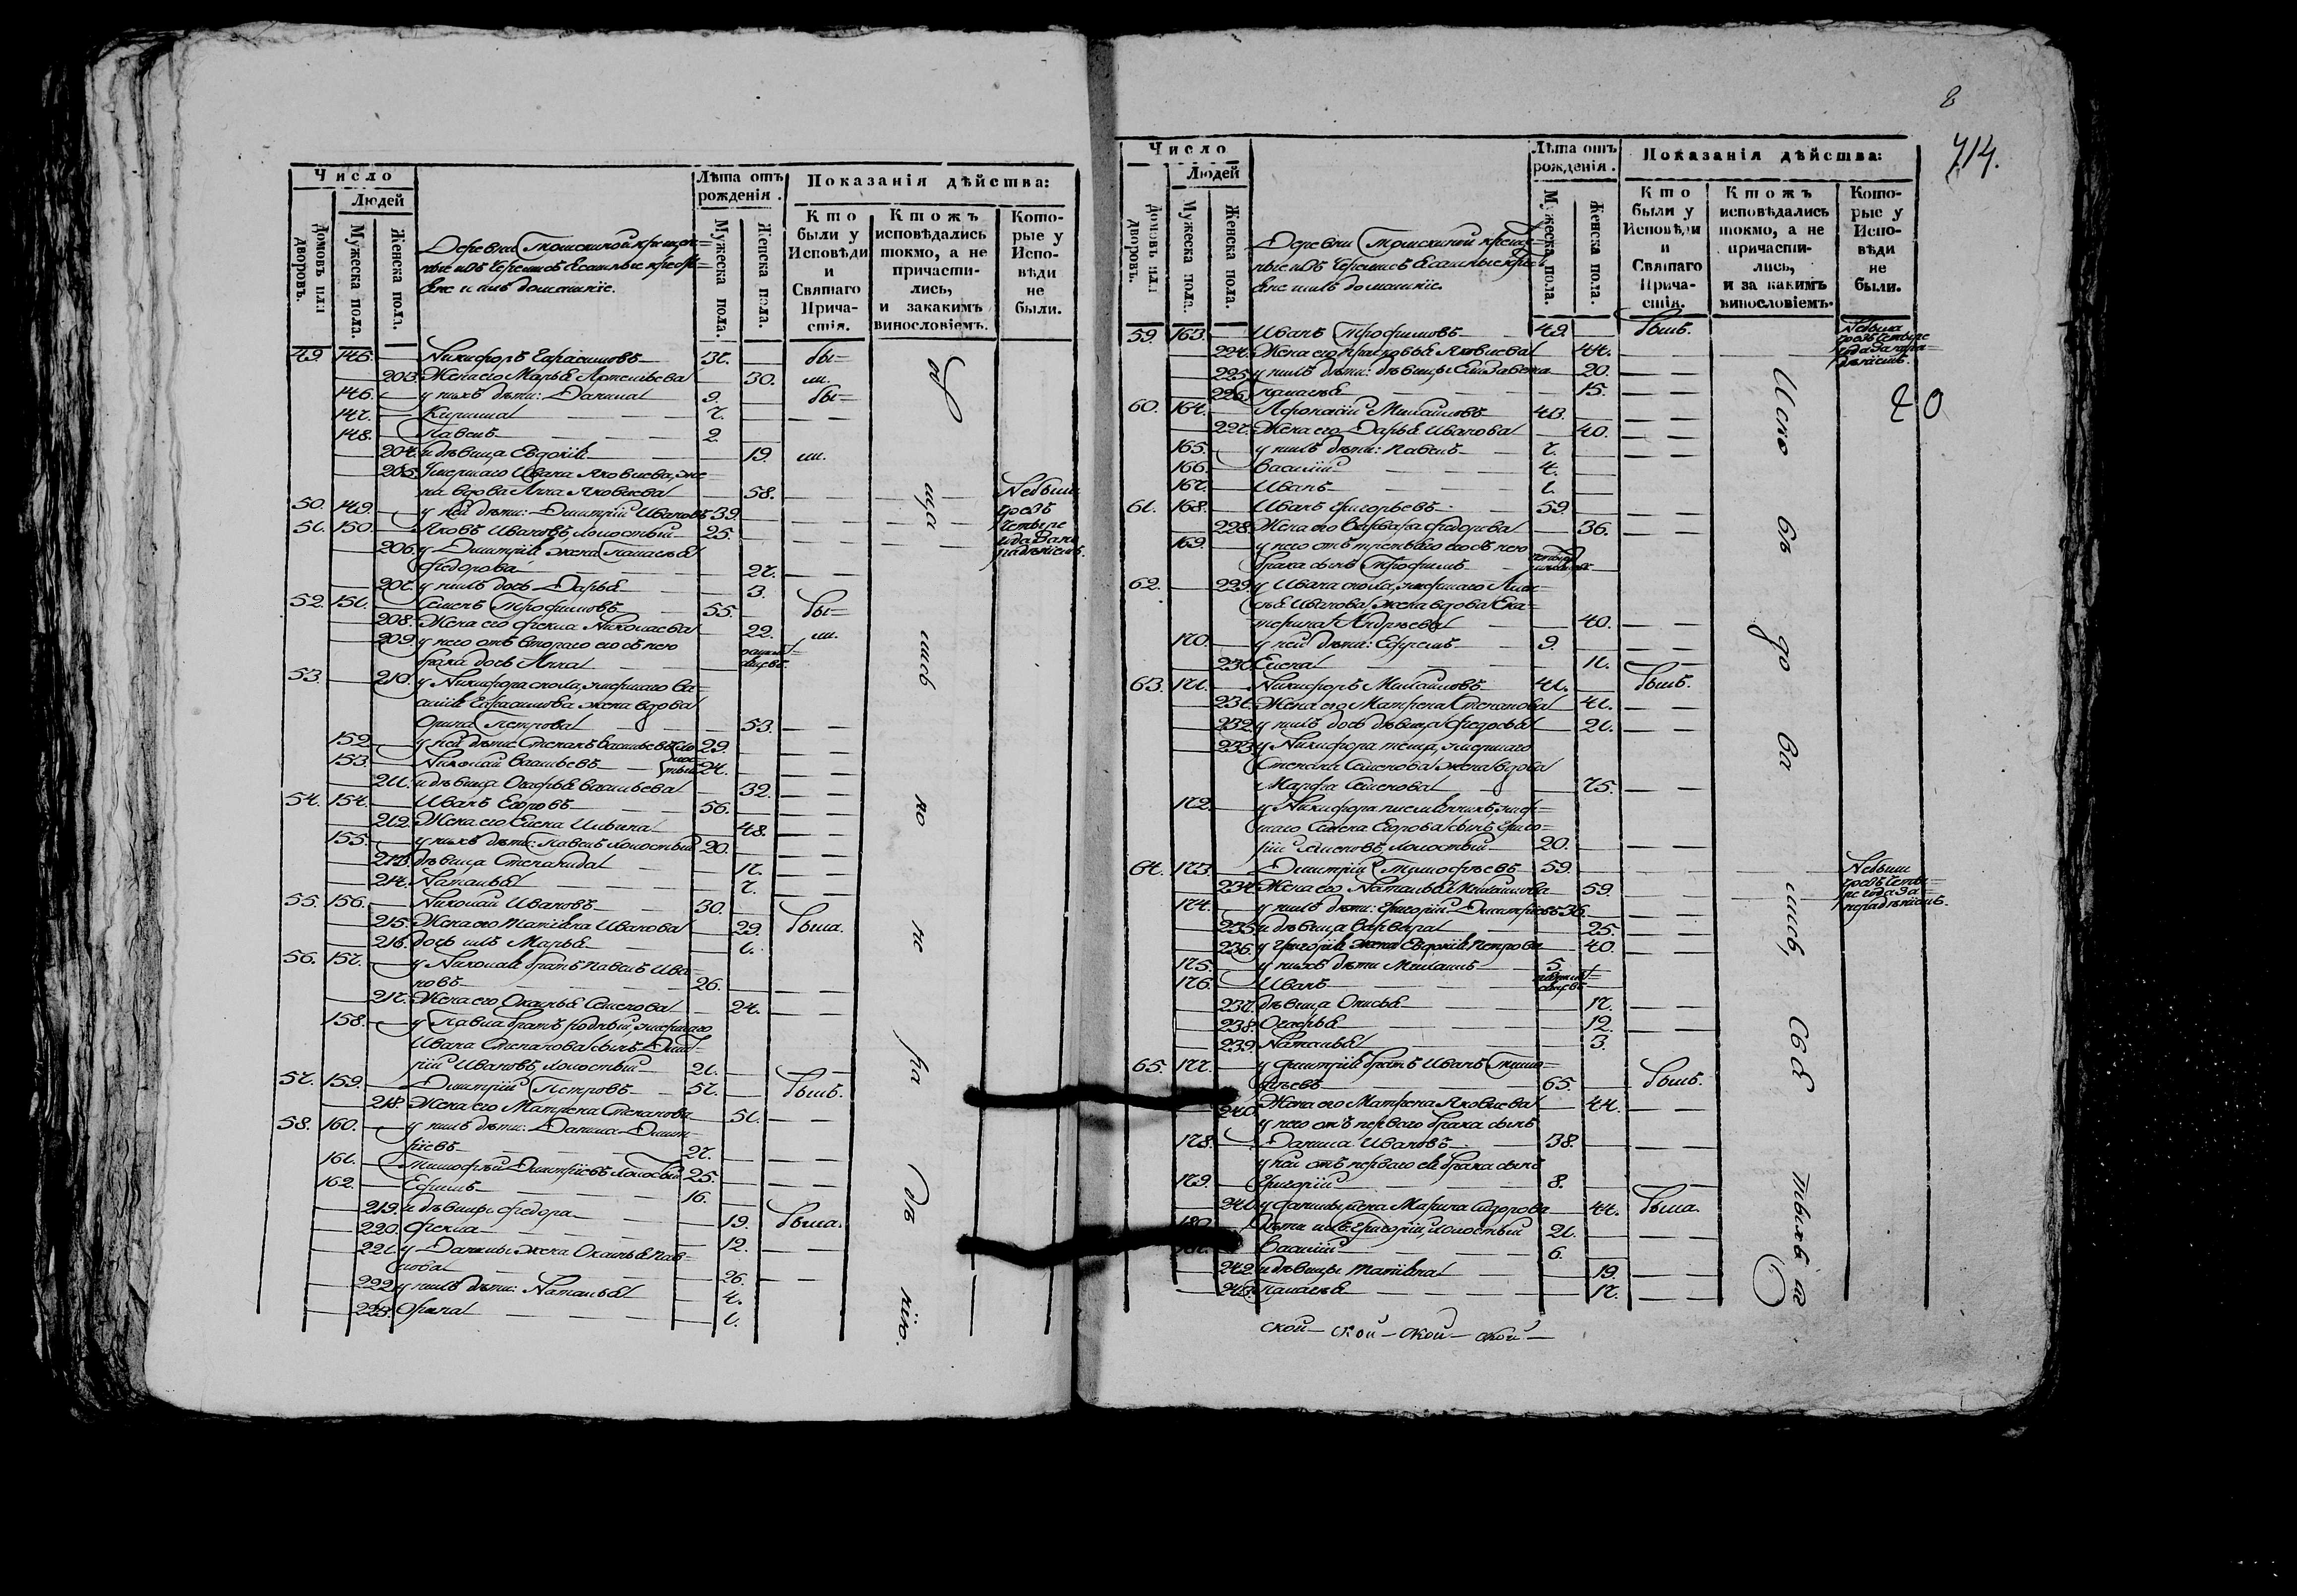 Число
Людей
Домовъ или дворовъ.
Мужеска пола.
Женска пола.
Лѣта отъ рожденія.
Мужеска пола.
Женска пола.
Показанія дѣйства:
Кто были у Исповѣди и Святаго Прича-стія.
Ктожъ исповѣдались токмо, а не причасти-лись, и закакимъ винословіемъ.
Кото-рые у Испо-вѣди не были.
49. 145. Никифоръ Герасимовъ 37. бы=
203. Жена его Марья Артемьева 30. ли.
146. у нихъ дѣти: Данила 9. бы=
147. Кирила 7.
148. Павелъ 2.
204. и дѣвица Евдокія 19. ли.
205. Умершаго Ивана Яковлева, же=
на вдова Анна Яковлева 58.
50. 149. у ней дѣти: Димитрій Ивановъ 39.
51. 150. Яковъ Ивановъ, холостый 25.
206. у Димитрія жена Палагѣя
Федорова 27.
207. у нихъ дочь Дарья 3.
52. 151. Семенъ Трофимовъ 55. бы=
208. Жена его Фекла Николаева 22. ли.
209. у него отъ втораго его съ нею
брака дочь Анна
53. 210. у Никифора сноха, умершаго Ва=
силія Герасимова жена вдова
Орина Петрова 53.
152. у ней дѣти: Степанъ Васильевъ 29.
153. Николай Васильевъ 24.
211. и дѣвица Огафья Васильева 32.
54. 154. Иванъ Егоровъ 56.
212. Жена его Елена Ильина 48.
155. у нихъ дѣти: Павелъ холостый 20.
213. дѣвица Степанида 17.
214. Наталья 7.
55. 156. Николай Ивановъ 30.
215. Жена его Татіяна Иванова 29. была.
216. дочь ихъ Марья 1.
56. 157. у Николая братъ Павелъ Ива=
новъ 26.
217. Жена его Окалина Семенова 24.
158. у Павла братъ родный, умершаго
Ивана Степанова сынъ Дими=
трій Ивановъ, холостый 21.
57. 159. Димитрій Петровъ 57. былъ.
218. Жена его Матрена Степанова 51.
58. 160. у нихъ дѣти: Данила Димит=
ріевъ 27.
161. Тимофѣй Димитріевъ холостый 25.
162. Ефимъ 16.
219. и дѣвицы Федора 19. была.
220. Фекла 12.
221. у Данилы жена Окалина Пав=
лова 26.
222. у нихъ дѣти: Наталья 4.
223. Орина 1.
8
714.
Число
Людей
Домовъ или дворовъ.
Мужеска пола.
Женска пола.
Лѣта отъ рожденія.
Мужеска пола.
Женска пола.
Показанія дѣйства:
Кто были у Исповѣди и Святаго Прича-стія.
Ктожъ исповѣдались токмо, а не причасти-лись, и за какимъ винословіемъ.
Кото-рые у Испо-вѣди не были.
59. 163. Иванъ Трофимовъ 49. былъ.
224. Жена его Прасковья Яковлева 44.
225. у нихъ дѣти: дѣвицы Елизавета 20.
226. Палагѣя 15.
60. 164. Афонасій Михайловъ 43.
227. Жена его Дарья Иванова 40.
165. у нихъ дѣти: Павелъ 7.
166. Василій 4.
167. Иванъ 1.
61. 168. Иванъ Григорьевъ 59.
228. Жена его Варвара Федорова 36.
169. у него отъ третьяго его съ нею
брака сынъ Трофимъ
62. 229. у Ивана сноха, умершаго Алек=
сѣя Иванова жена вдова Ека=
терина Андрѣева 40.
170. у ней дѣти: Ефремъ 9.
230. Елена 11.
63. 171. Никифоръ Михайловъ 41. былъ.
231. Жена его Матрена Степанова 41.
232. у нихъ дочь дѣвица Федосья 21.
233. у Никифора теща, умершаго
Степана Семенова жена вдова
Марфа Семенова 75.
172. у Никифора племянникъ, умер=
шаго Семена Егорова сынъ Григо=
рій Семеновъ, холостый 20.
64. 173. Димитрій Тимофѣевъ 59.
234. Жена его Наталья Михайлова 59.
174. у нихъ дѣти: Григорій Димитріевъ 36.
235. и дѣвица Варвара 25.
236. у Григорія жена Евдокія Петрова 40.
175. у нихъ дѣти Михаилъ 5.
176. Иванъ
237. дѣвица Онисья 17.
238. Огафья 12.
239. Наталья 3.
65. 177. у Димитрія братъ Иванъ Тимо=
фѣевъ 65. былъ.
240. Жена его Матрена Яковлева 44.
у него отъ перваго брака сынъ
178. Данила Ивановъ 38.
у ней отъ перваго ея брака сынъ
179. Григорій 8.
240. у Данилы жена Марина Сидорова 44. была.
180. Дѣти ихъ: Григорій, холостый 21.
Василій 6.
242. и дѣвицы Татіяна 19.
243. Палагѣя 17.
20
ской — ской — ской — ской —